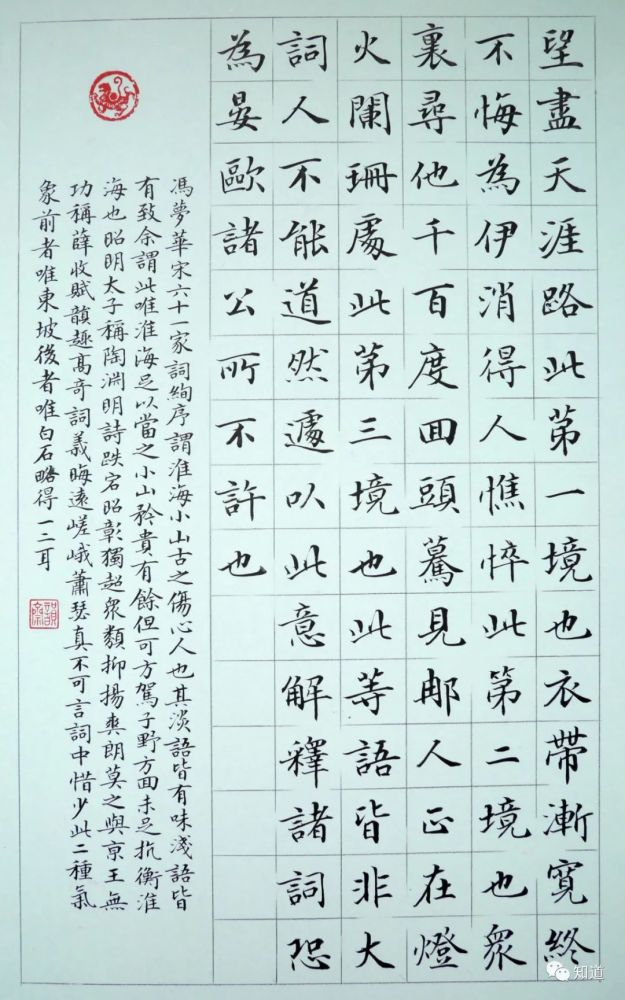 望盡天涯路此苐一境也衣帶漸寬終
不悔為伊消得人憔悴此第二境也衆
裏尋他千百度回頭驀見那人正在燈
火闌珊處此第三境也此等語皆非大
詞人不能道然遽以此意解釋諸詞恐
為晏歐諸公所不許也
馮夢華宋六十一家詞絢序謂淮海小山古之傷心人也其淡語皆有味淺語皆
有致余謂此唯淮海足以當之小山矜貴有餘但可方駕子野方面未足抗衡淮
海也昭明太子稱陶淵明詩跌宕昭彰獨超衆類抑揚爽朗莫之與京王無
功稱薛收賦韻趣高奇詞義晦遠嵯峨蕭瑟真不可言詞中惜少此二種氣
象前者唯東坡後者唯白石略得一二耳
知道